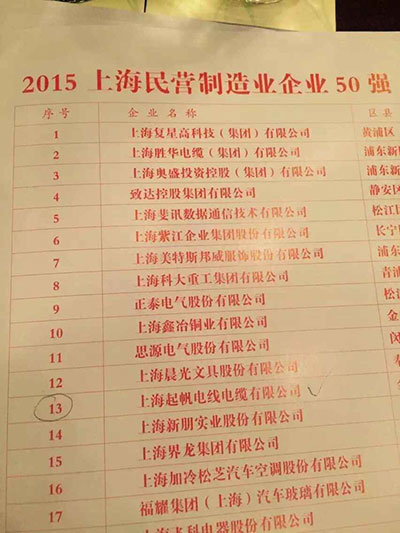 2015 上海民营制造业企业 50 强
序号 企业名称 区县
1 上海复星高科技（集团）有限公司 黄浦区
2 上海胜华电缆（集团）有限公司 浦东新
3 上海奥盛投资控股（集团）有限公司 浦东新
4 致达控股集团有限公司 静安区
5 上海斐讯数据通信技术有限公司 松江
6 上海紫江企业集团股份有限公司 长宁
7 上海美特斯邦威服饰股份有限公司 浦东
8 上海科大重工集团有限公司 青浦
9 正泰电气股份有限公司 松江
10 上海鑫冶铜业有限公司 金
11 思源电气股份有限公司
12 上海晨光文具股份有限公司
13 上海起帆电线电缆有限公司
14 上海新朋实业股份有限公司
15 上海界龙集团有限公司
16 上海加冷松芝汽车空调股份有限公司
17 福耀集团（上海）汽车玻璃有限公司